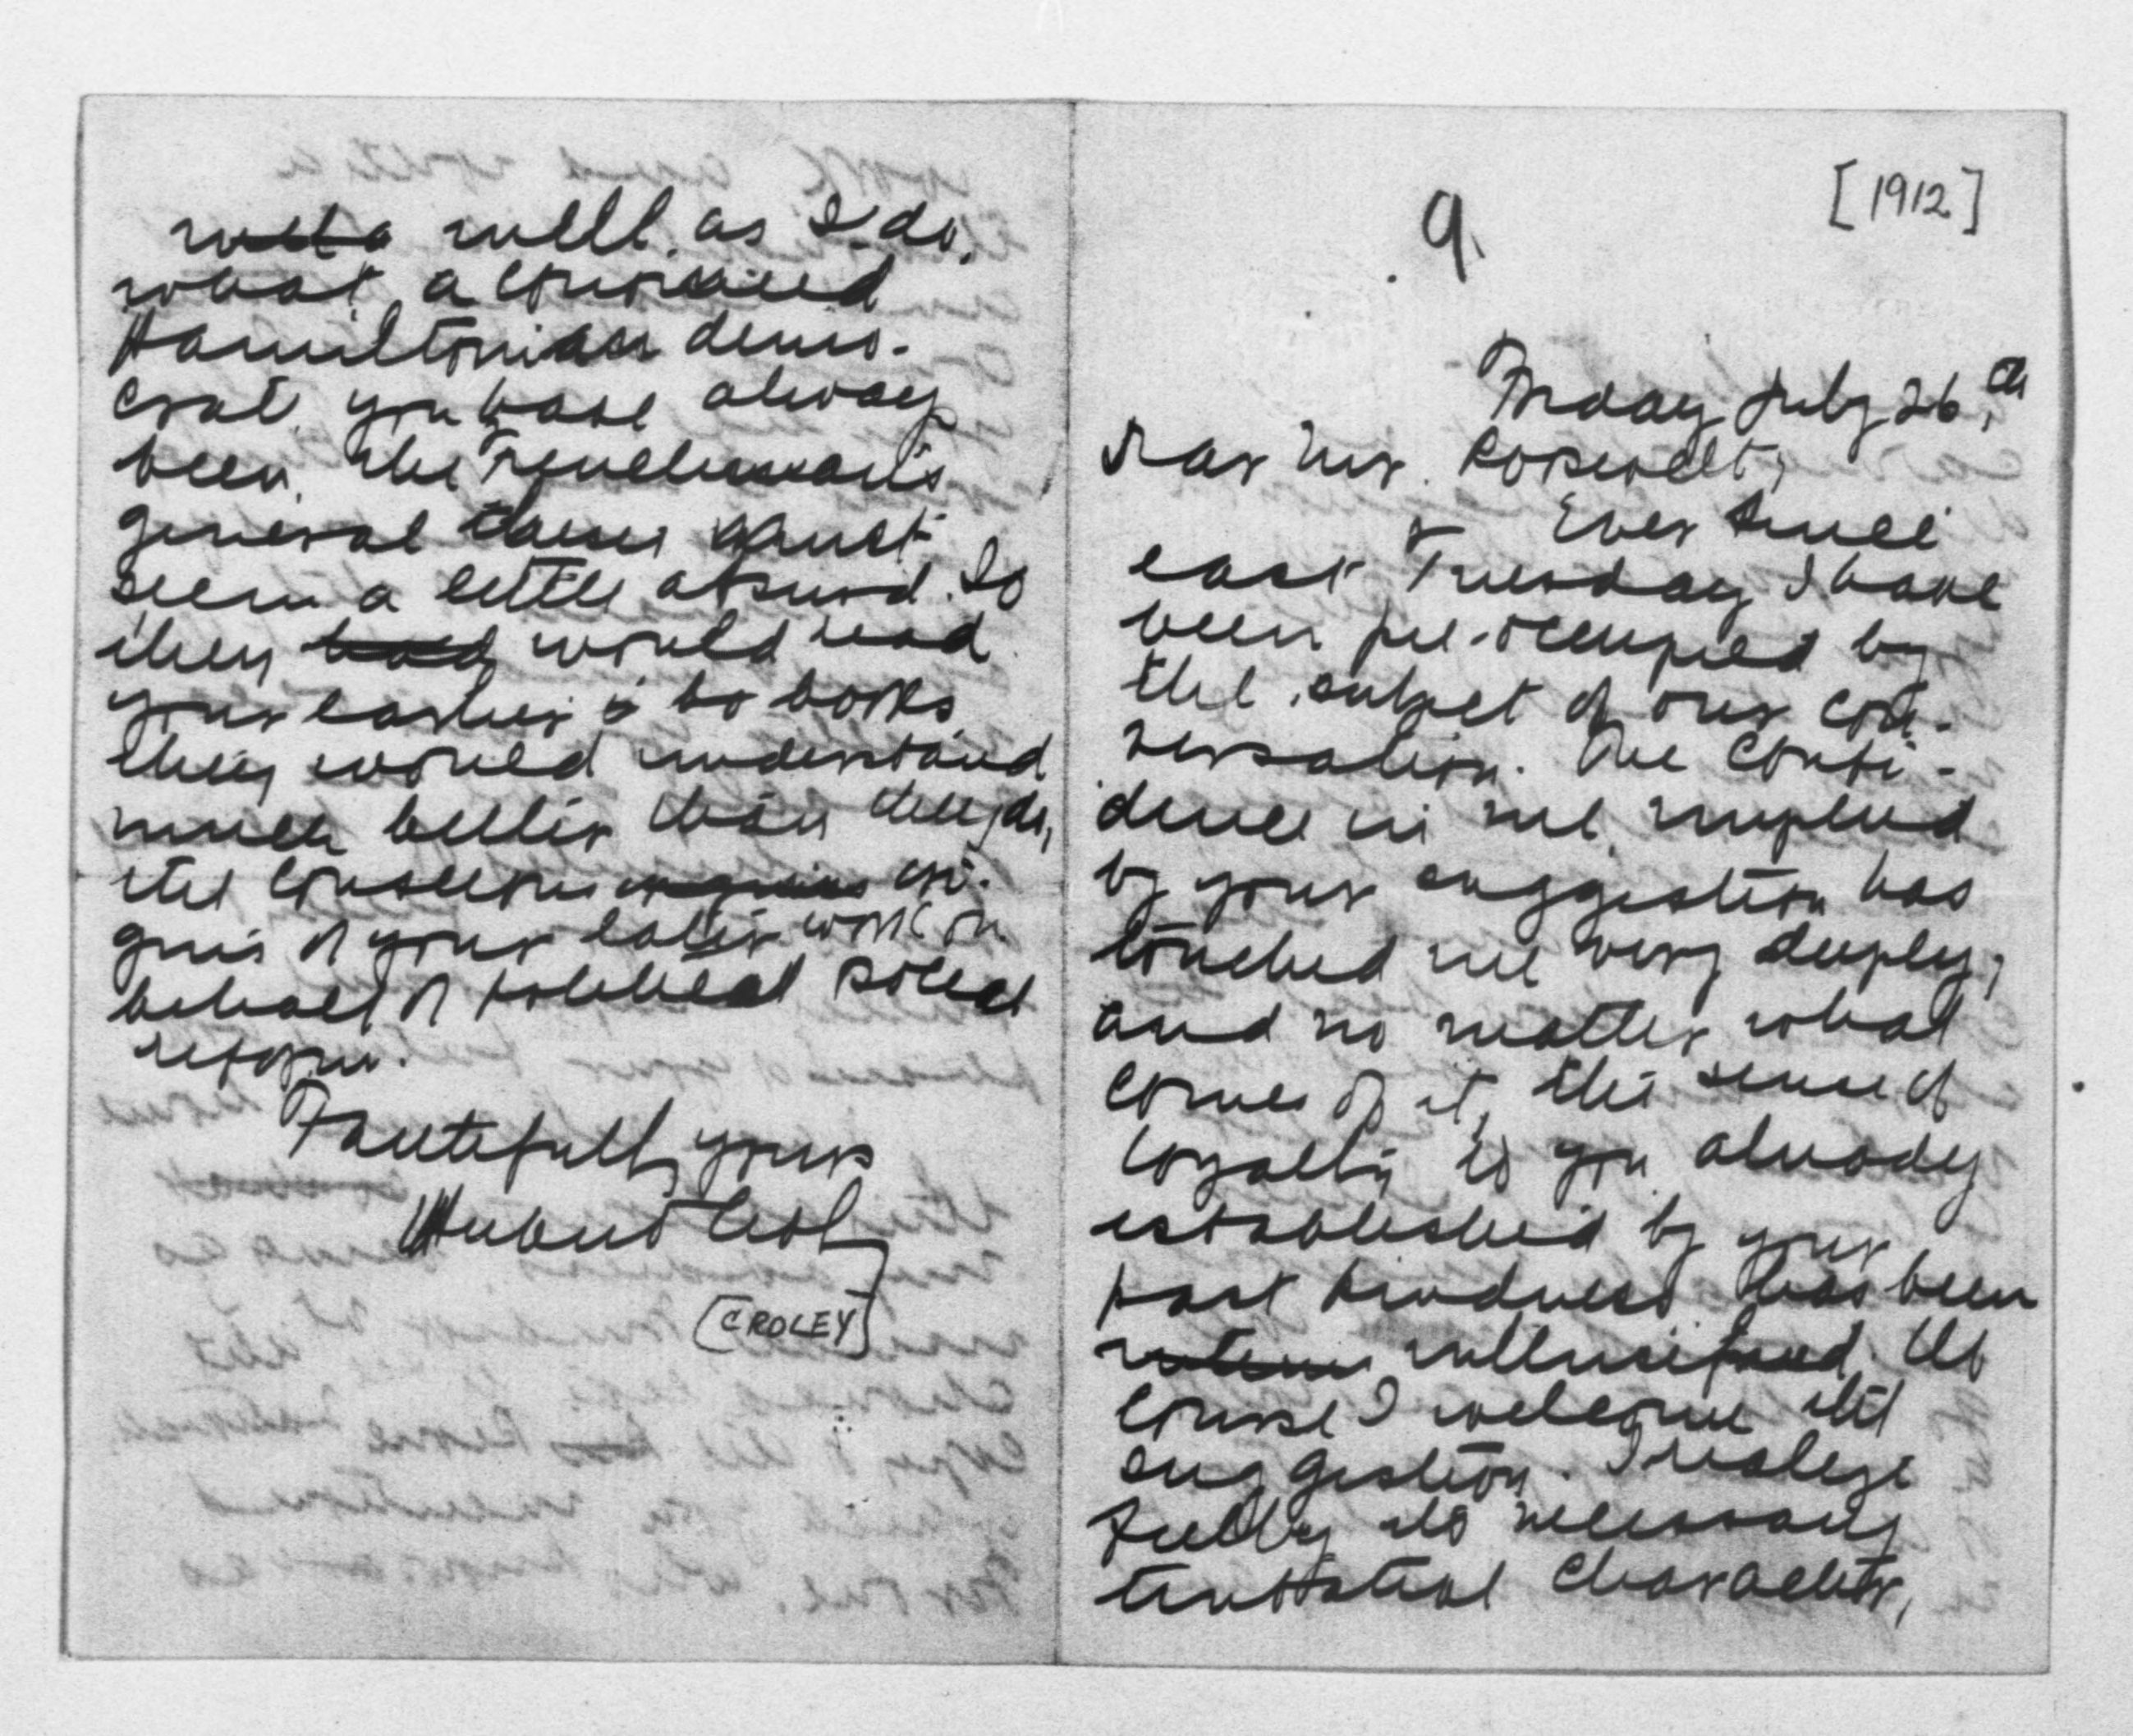 well as I do,
what a convinced
Hamiltonian demo-
crat you have always
been, the gentleman's
general thesis must
seem a little absurd. If
they would read
your earlier books
they would understand
much better than they do,
the conscious ori-
gins of your later work on
behalf of political social
reform.
Faithfully yours
Herbert Croly
[CROLEY]
9.
[1912]
Friday July 26th
Dear Mr. Roosevelt,
Ever since
last Tuesday I have
been pre-occupied by
the subject of our con-
versation. The confi-
dence in me implied
by your suggestion has
touched me very deeply;
and no matter what
comes of it, the sense of
loyalty to you already
established by your
past kindness has been
intensified. Of
course I welcome the
suggestion. I realize
fully its necessary
tentative character,